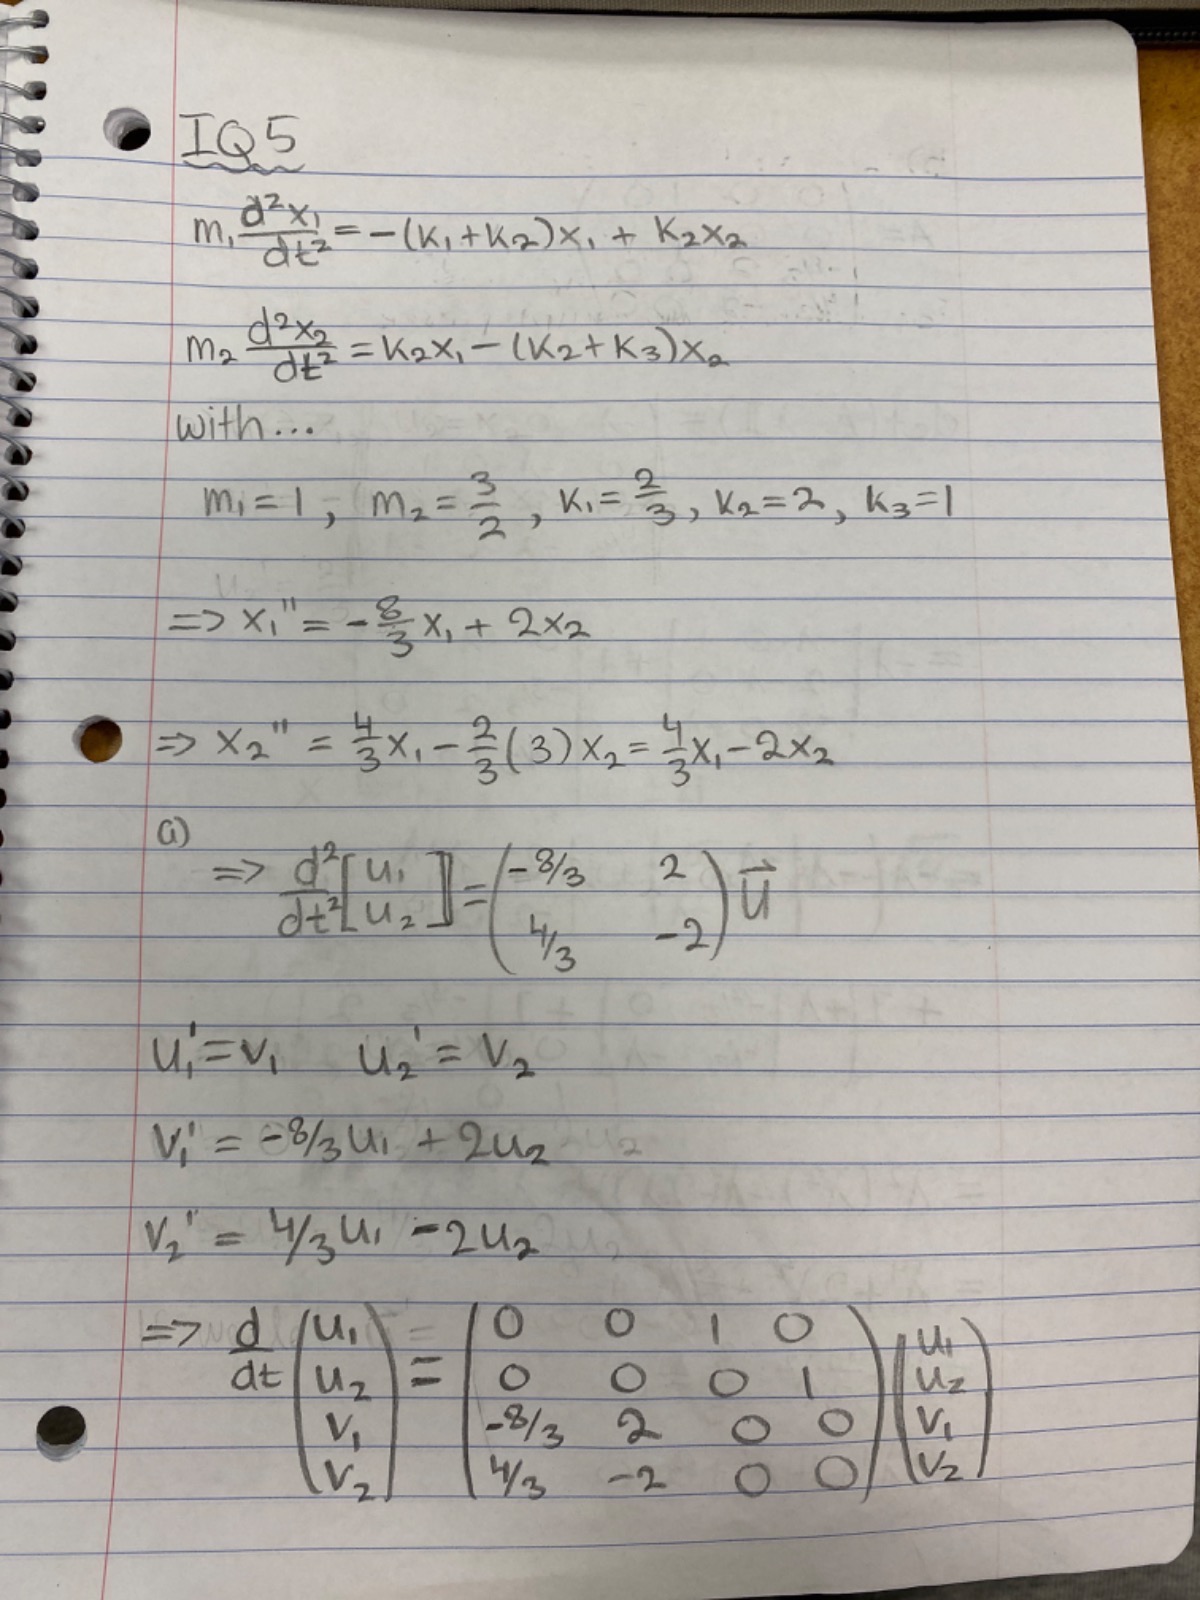 IQ5
m₁ d²x₁/dt² = -(k₁+k₂)x₁ + k₂x₂
m₂ d²x₂/dt² = k₂x₁ - (k₂+k₃)x₂
with...
m₁=1, m₂=3/2, k₁=2/3, k₂=2, k₃=1
=> x₁'' = -8/3 x₁ + 2x₂
=> x₂'' = 4/3 x₁ - 2/3 (3) x₂ = 4/3 x₁ - 2x₂
a)
=> d²/dt² [u₁ u₂] = (-8/3 2 4/3 -2) u⃗
u₁' = v₁ u₂' = v₂
v₁' = -8/3 u₁ + 2u₂
v₂' = 4/3 u₁ - 2u₂
=> d/dt (u₁ u₂ v₁ v₂) = (0 0 1 0
0 0 0 1
-8/3 2 0 0
4/3 -2 0 0) (u₁ u₂ v₁ v₂)